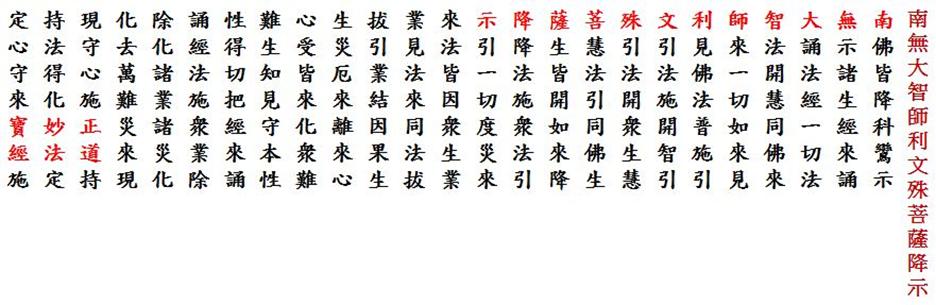 南無大智師利文殊菩薩降示
南佛皆降科鸞示
無示諸生經來誦
大誦法經一切法
智法開慧同佛來
師來一切如來見
利見佛法普施引
文引法施開智引
殊引法開眾生慧
菩慧法引同佛生
薩生皆開如來降
降降法施眾法引
示引一切度災來
來法皆因眾生業
業見法來同法拔
拔引業結因果生
生災厄來離來心
心受皆來化眾難
難生知見守本性
性得切把經來誦
誦經法施眾業除
除化諸業諸災化
化去萬難災來現
現守心施正道持
持法得化妙法定
定心守來寶經施